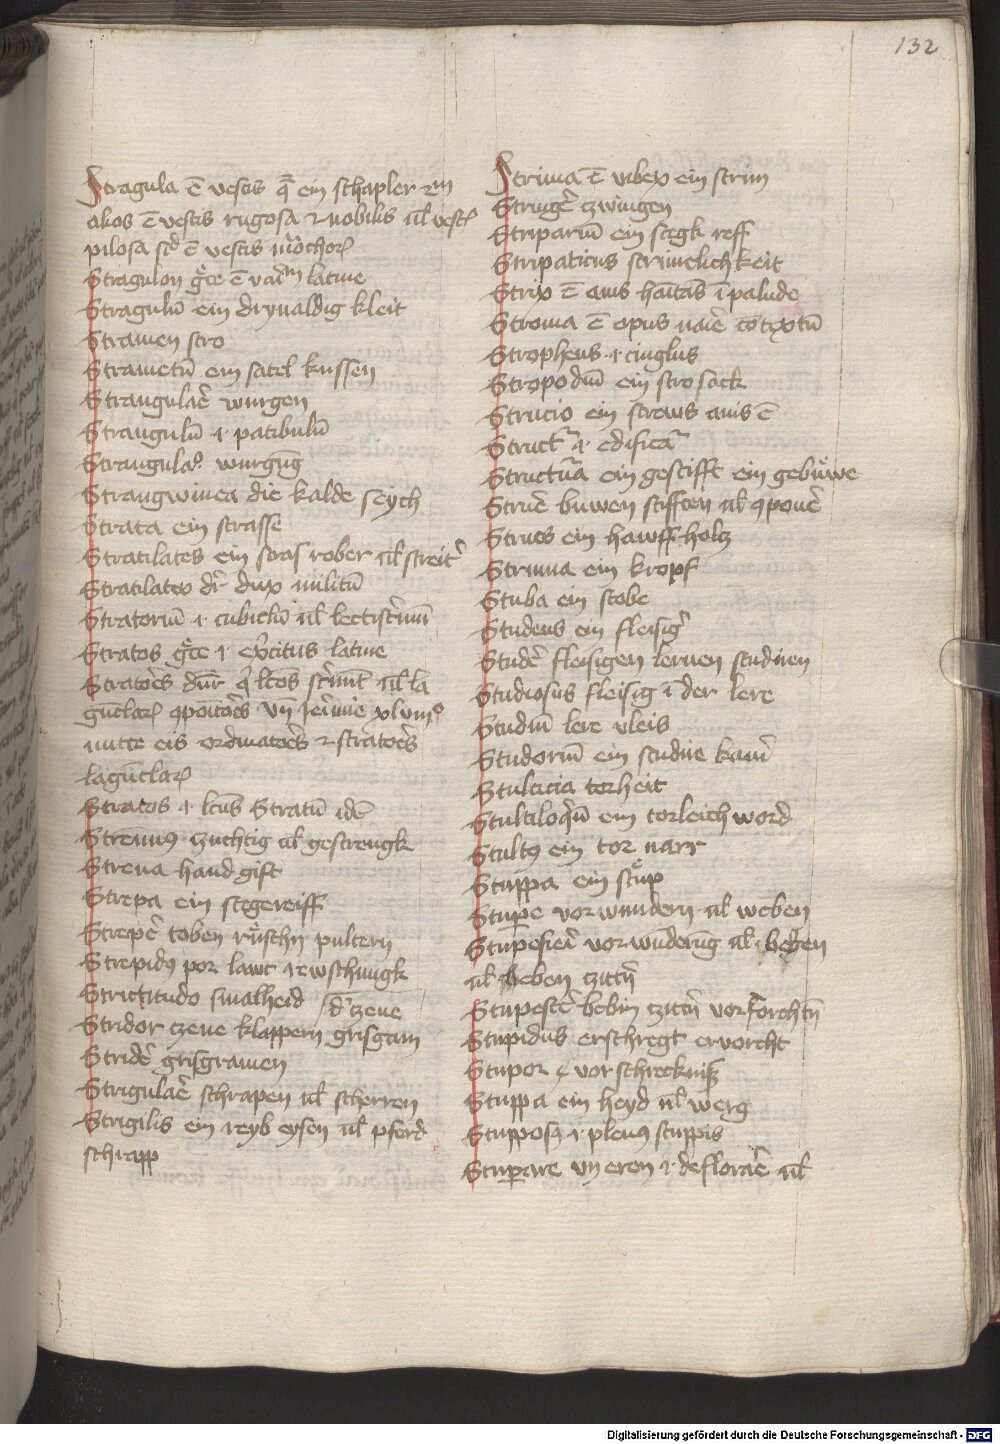 132
Stragula ē vestis q̄ ein schapler
alios ē vestis rugosa ⁊ nobilis ul̄ vestꝭ
pilosa sed ē vestis
Stragulon grece ē latine
Stragulū ein drynaldig kleit
Stramen stro
Strametū ein satel kussen
Strangulaꝛ̄e wurgen
Strangulū .i. patibulū
Strangulaᵒ wurgūg
Strangwinea die kalde seych
Strata ein strasse
Stratilates ein stras rober ul̄ streitꝰ
Stratilatex dr̄ dux militū
Stratoriū .i. cubiclū ul̄ lectist̄niū
Stratos grece .i. exc̄itus latine
mitte eis ordinatoēs ⁊ stratoēs
Stratos .i. lectus Stratū idē
Strenuꝰ zuchtig ul̄ gestrengk
Strena handgift
Strepa ein stegereiff
Strepē toben ruschn pultern
Strepidꝰ por lawt rewschungk
Strictitudo smalheid
Stridor zene klappern grisgam d' zene
Stridē grisgramen
Strigulaē schrapen ul̄ scherren
Strigilis ein reyb eysen ul̄ pferd
schrapp
Strima ē vibex ein strim
Stringē zwingen
Stripariū ein stegk reff
Stripaticus strimelichkeit
Strix ē auis hāitās ī palude
Stroma ē opus
Stropheus .i. cinglus
Stropodiū ein stro sack
Strucio ein strews auis ē
Struct' .i. edificat'
Structūa ein gestifft ein gebuwe
Struē buwen stifften ul̄ ꝯponē
Strues ein hawff holtz
Struma ein kropf
Stuba ein stobe
Studens ein fleisigꝰ
Studē fleisigen lernen studiren
Studiosus fleisig ī der lere
Studiū lere vleis
Studoriū ein studire kam̄
Stulticia torheit
Stultiloq̄ū ein torleich word
Stultꝰ ein tor narr
Stuppa ein stup
Stupe vorwundern ul̄ weben
Stupefieri vorwūderūg ul̄ beben
ul̄ beben zittn̄
Stupescē bebin zittn̄ vorforchtn̄
Stupidus erschregt ervorcht
Stupor vorschreckniß
Stuppa ein heyd ul̄ werg
Stupposꝰ .i. plenꝰ stuppis
Stuprare vneren .i. defloraē ul̄
Digitalisierung gefördert durch die Deutsche Forschungsgemeinschaft - DFG